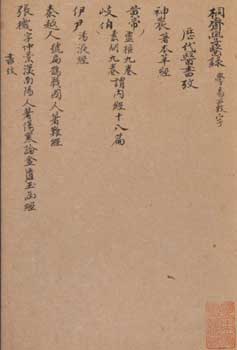 桐齋學醫錄 學易蔽字
歷代醫書攷
神農著本草經
黃帝 靈樞九卷
岐伯 素問九卷 謂內經十八篇
伊尹湯液經
秦越人號扁鵲戰國人著難經
張機字仲景漢南陽人著傷寒論金匱玉函經
書攷